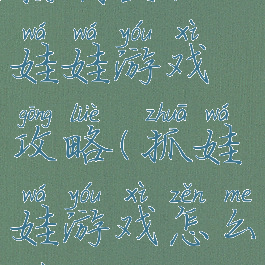 wá wá yóu xì
娃娃游戏
gōng lüè ( zhuā wá
攻略(抓娃
wá yóu xì zěn me
娃游戏怎么